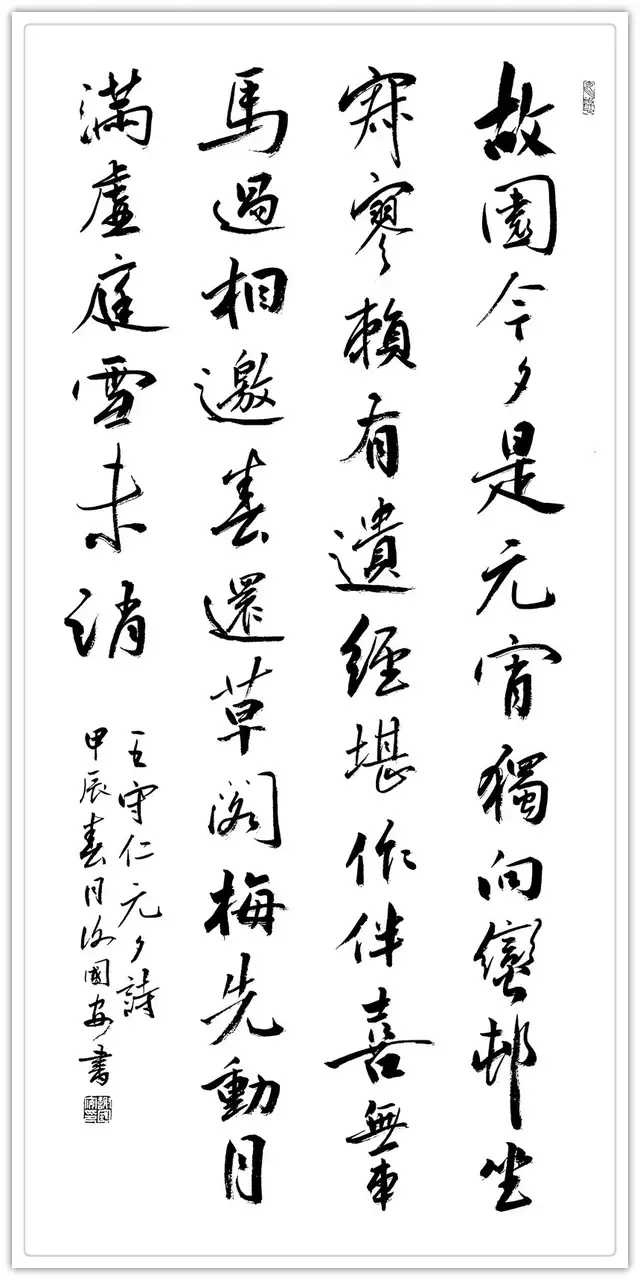 故園今夕是元宵獨向蠻邨坐
寂寥賴有遺經堪作伴喜無車
馬過相邀春還草閣梅先動月
滿虛庭雪未消
王守仁元夕詩
甲辰春月國安書